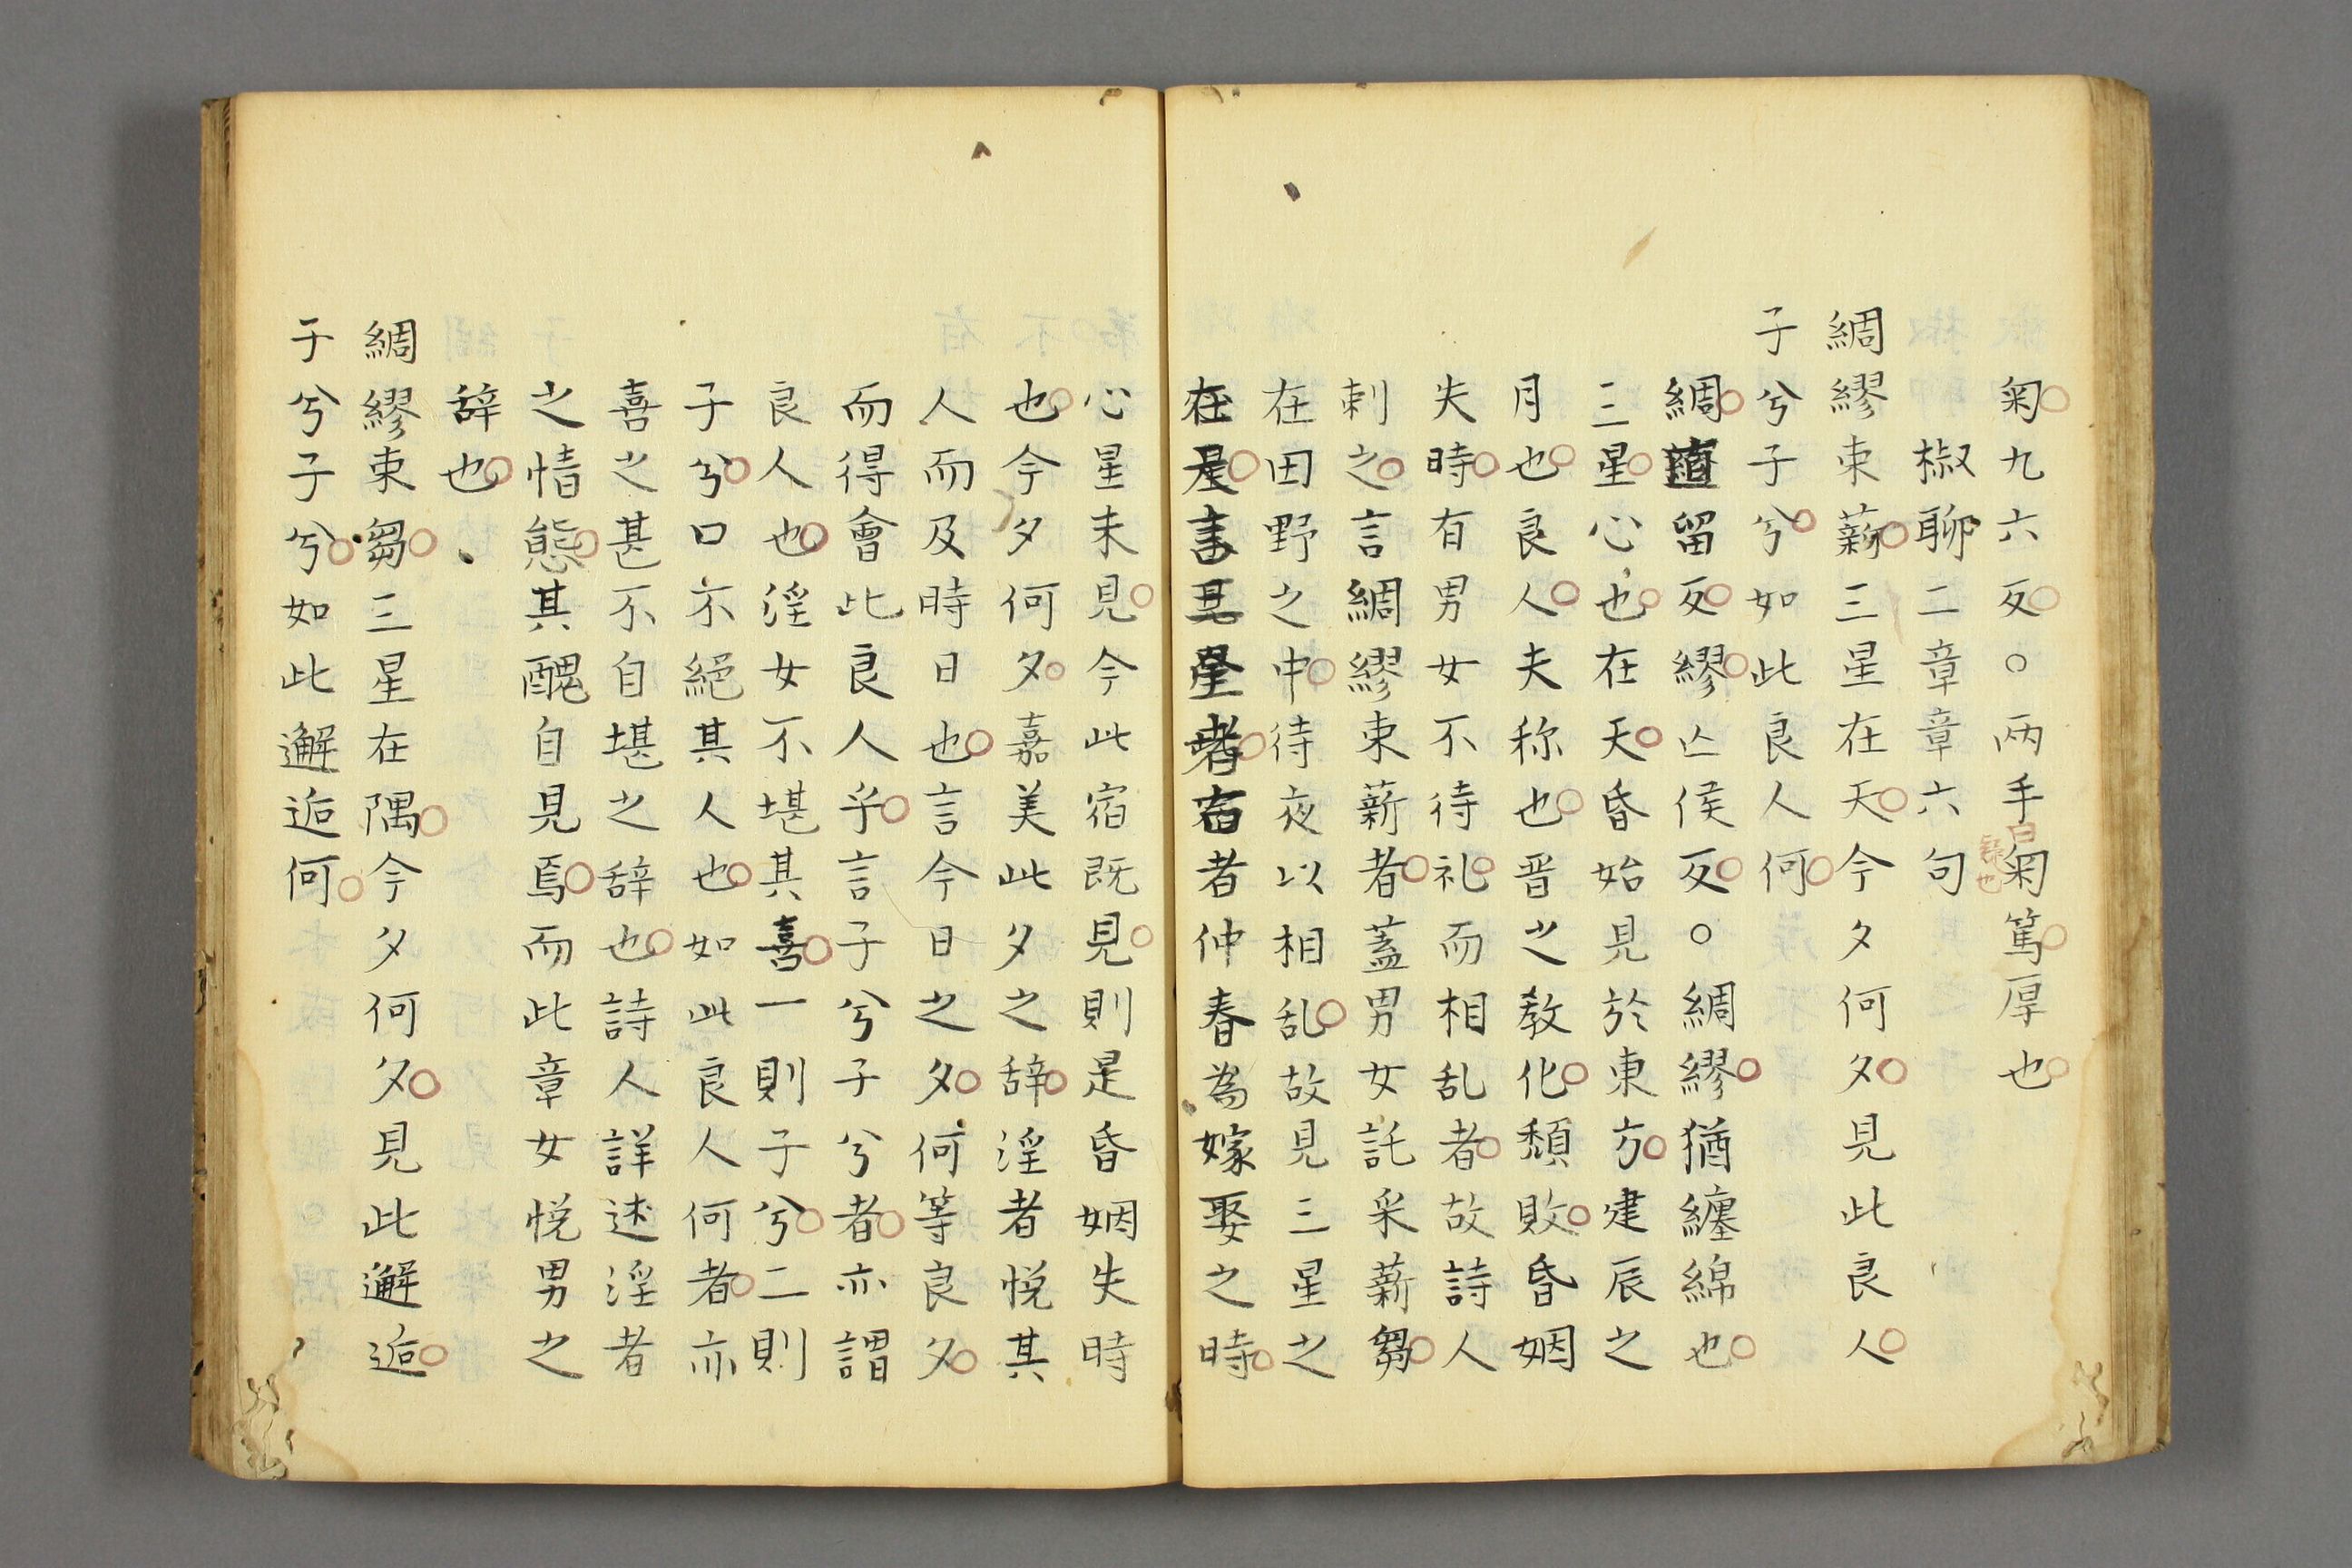 匊九六反○兩手曰匊篤厚也
椒聊二章章六句
綢繆束薪三星在天今夕何夕見此良人
子兮子兮如此良人何
綢直留反繆亡侯反○綢繆猶纏綿也
三星心也在天昏始見於東方建辰之
月也良人夫称也晋之教化頽敗昏姻
失時有男女不待礼而相乱者故詩人
刺之言綢繆束薪者蓋男女託采薪芻
在田野之中待夜以相乱故見三星之
在天言三星者宿者仲春為嫁娶之時
心星未見今此宿既見則是昏姻失時
也今夕何夕嘉美此夕之辞淫者悦其
人而及時日也言今日之夕何等良夕
而得會此良人乎言子兮子兮者亦謂
良人也淫女不堪其喜一則子兮二則
子兮口不絕其人也如此良人何者亦
喜之甚不自堪之辞也詩人詳述淫者
之情態其醜自見焉而此章女悦男之
辞也
綢繆束芻三星在隅今夕何夕見此邂逅
子兮子兮如此邂逅何